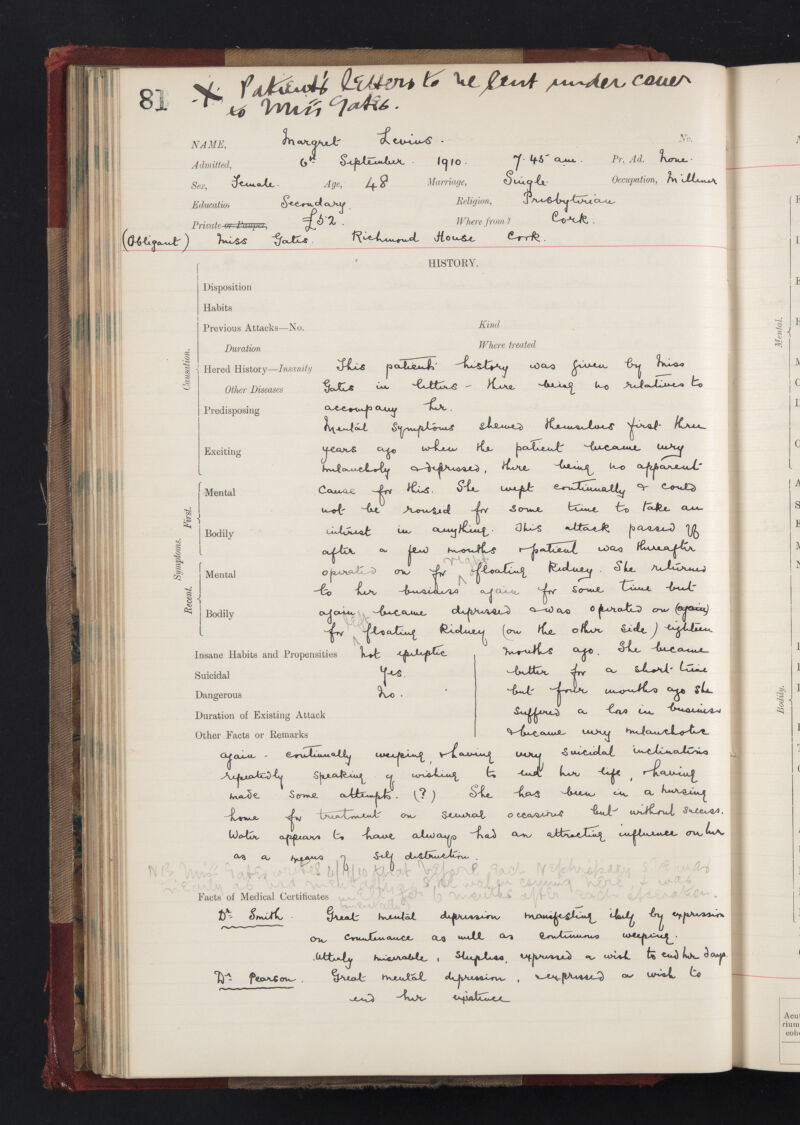 81
X Patient's letters to be sent under cover
to Miss Gates.
NAME, Margret Levins. No.
Admitted, 6th September. 1910. 7.45 am. Pr. Ad. none.
Sex, Female. Age, 48 Marriage, Single. Occupation, Milliner
Education Secondary. Religion, Presbyterian
Private or Pauper, £52. Where from? Cork.
(Obligant) Miss Gates. Richmond House Cork.
HISTORY.
Disposition
Habits
Previous Attacks—No. Kind
Duration Where treated
Causation.
Hered History—Insanity This patients' history was given by Miss
Other Diseases Gates in letters - there being no relatives to
Predisposing accompany her.
Mental Symptoms shewed themselves first three
Exciting years ago when the patient became very
melancholy & depressed, there being no apparent
Symptoms. First.
Mental cause for this. She wept continually & could
not be roused for some time to take an
Bodily interest in anything. This attack passed off
after a few months & patient was thereafter
Recent.
Mental operated on for right floating kidney. She returned
to her business again for some time but
Bodily again became depressed & was operated on (again)
for left floating kidney (on the other side) eighteen
Insane Habits and Propensities Not epileptic months ago. She became
Suicidal Yes. better for a short time
Dangerous No. but four months ago she
Duration of Existing Attack suffered a loss in business
Other Facts or Remarks & became very melancholic
again - continually weeping, & having very suicidal inclinations
repeatedly speaking of wishing to end her life, & having
made some attempts. (?) She has been in a nursing
home for treatment on several occasions but without success.
Water appears to have always had an attracting influence on her
as a means of self destruction.
NB Miss Gates writes 4/9/10 that before each Nephropexy she was
nearly as bad mentally as she was on coming here & was
well for 6 months after each operation.
mentally
Facts of Medical Certificates
Dr. Smith. Great mental depression manifesting itself by expression
on countenance as well as continuous weeping.
Utterly miserable, sleepless, expressed a wish to end her days.
Dr. Pearson. Great mental depression, & expressed a wish to
end her existence
Mental.
Bodily.
Acu
rium